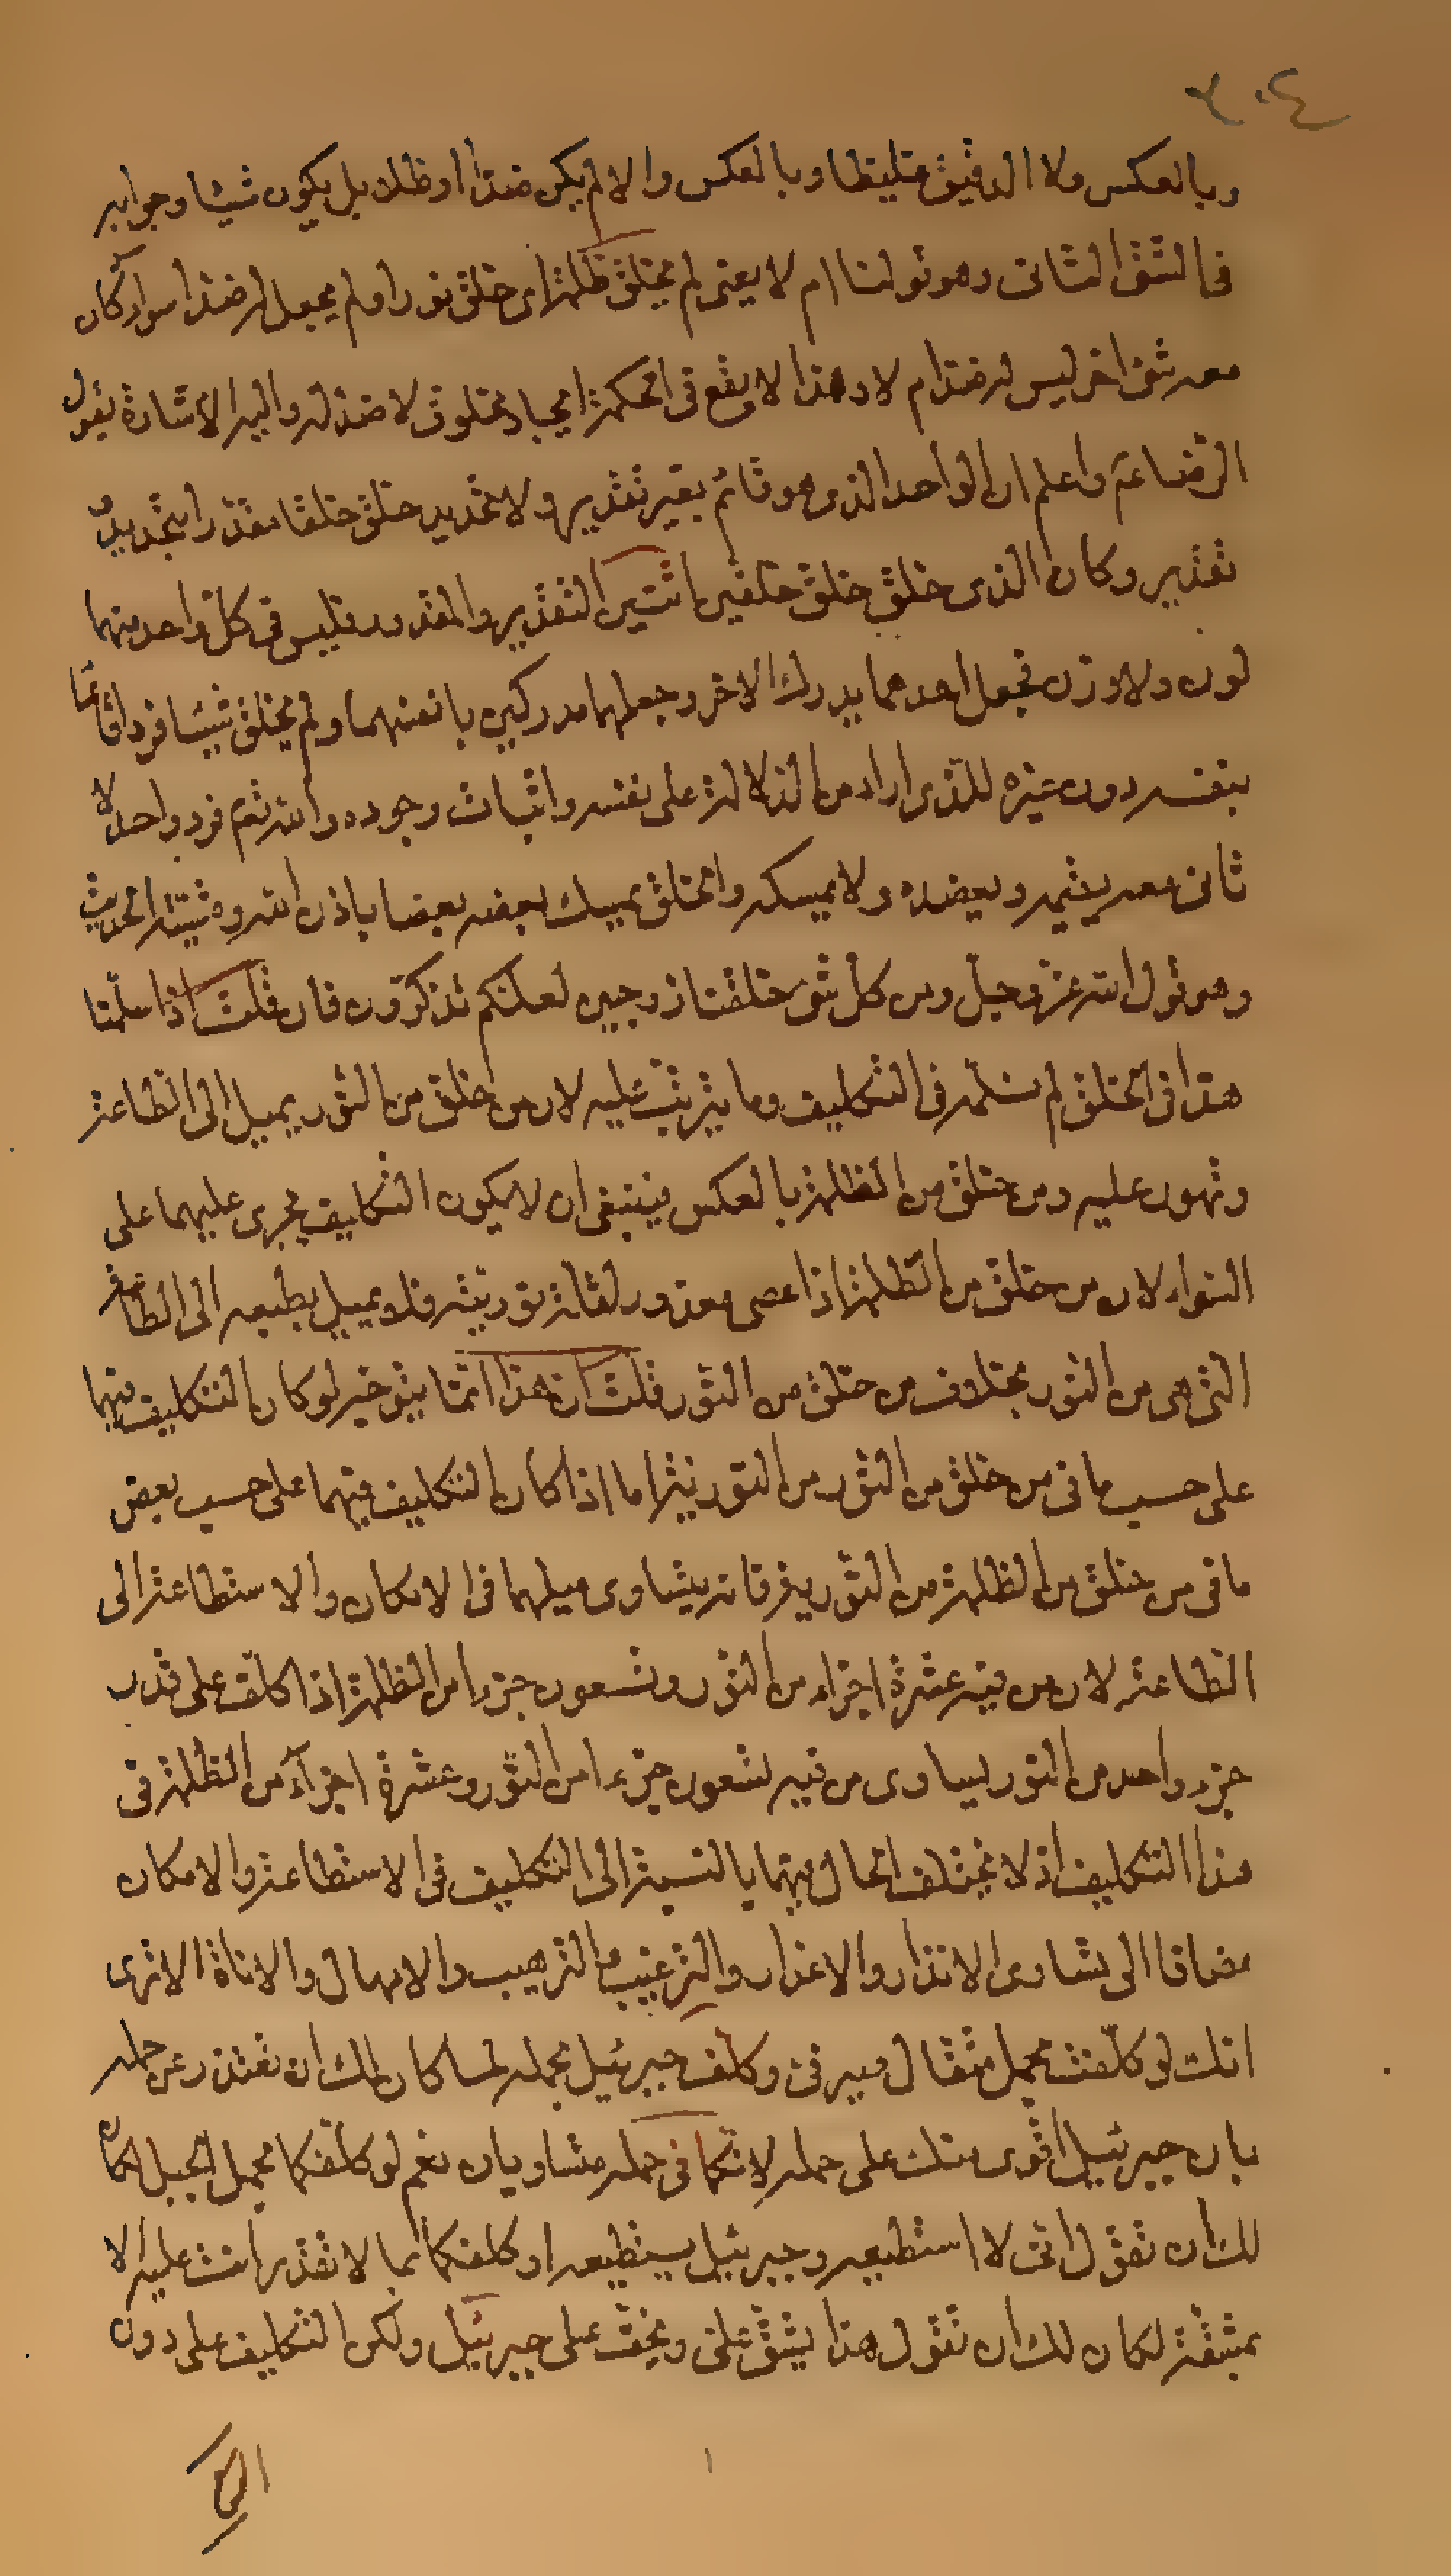 ٣٠٤
وبالعكس ولا الدقيق غليظا وبالعكس والا لم يكن ضدا او ظلا بل يكون شيئا وجوابه
في الشق الثاني وهو قولنا ام لا يعني لم يخلق ظلمة اي خلق نورا ولم يجعل له ضدا سواء كان
معه شئ اخر ليس له ضد ام لا وهذا لا يقع في الحكمة ايجاد مخلوق لا ضد له واليه الاشارة بقول
الرضا عم واعلم ان الواحد الذي هو قائم بغير تقدير ولا تحديد خلق خلقا مقدرا بتحديد و
تقدير وكان الذي خلق خلقين اثنين التقدير والمقدر فليس في كل واحد منهما
لون ولا وزن فجعل احدهما يدرك الاخر وجعلهما مدركين بانفسهما ولم يخلق شيئا فردا قائما
بنفسه دون غيره للذي اراد من الدلالة على نفسه واثبات وجوده والله تعم فرد واحد لا
ثاني معه يقيمه ويعضده ولا يمسكه والخلق يمسك بعضه بعضا باذن الله ومشيته الحديث
وهو قول الله عز وجل ومن كل شئ خلقنا زوجين لعلكم تذكرون فان قلت اذا سلمنا
هذا في الخلق لم نسلمه في التكليف وما يترتب عليه لان من خلق من النور يميل الى الطاعة
وتهون عليه ومن خلق من الظلمة بالعكس فينبغي ان لا يكون التكليف يجري عليهما على
السواء لان من خلق من الظلمة اذا عصى معذور لقلة نوريته فلا يميل بطبعه الى الطاعة
التي هي من النور بخلاف من خلق من النور قلت ان هذا انما يتوجه لو كان التكليف فيهما
على حسب ما في من خلق من النور من النورية اما اذا كان التكليف فيهما على حسب بعض
ما في من خلق من الظلمة من النورية فانه يتساوى ميلهما في الامكان والاستطاعة الى
الطاعة لان من فيه عشرة اجزاء من النور وتسعون جزءا من الظلمة اذا كلف على قدر
جزء واحد من النور يساوي من فيه تسعون جزءا من النور وعشرة اجزاء من الظلمة في
هذا التكليف اذ لا يختلف الحال فيهما بالنسبة الى التكليف في الاستطاعة والامكان
مضافا الى تساوي الانذار والاعذار والترغيب والترهيب والامهال والاناة الا ترى
انك لو كلفت بحمل مثقال صيرفي وكلف جبرئيل بحمله لما كان لك ان تعتذر عن حمله
بان جبرئيل اقوى منك على حمله لانكما في حمله متساويان نعم لو كلفكما بحمل الجبل لكان
لك ان تقول اني لا استطيعه وجبرئيل يستطيعه او كلفكما بما لا تقدر انت عليه الا
بمشقة لكان لك ان تقول هذا يشق علي ويخف على جبرئيل ولكن التكليف على دون